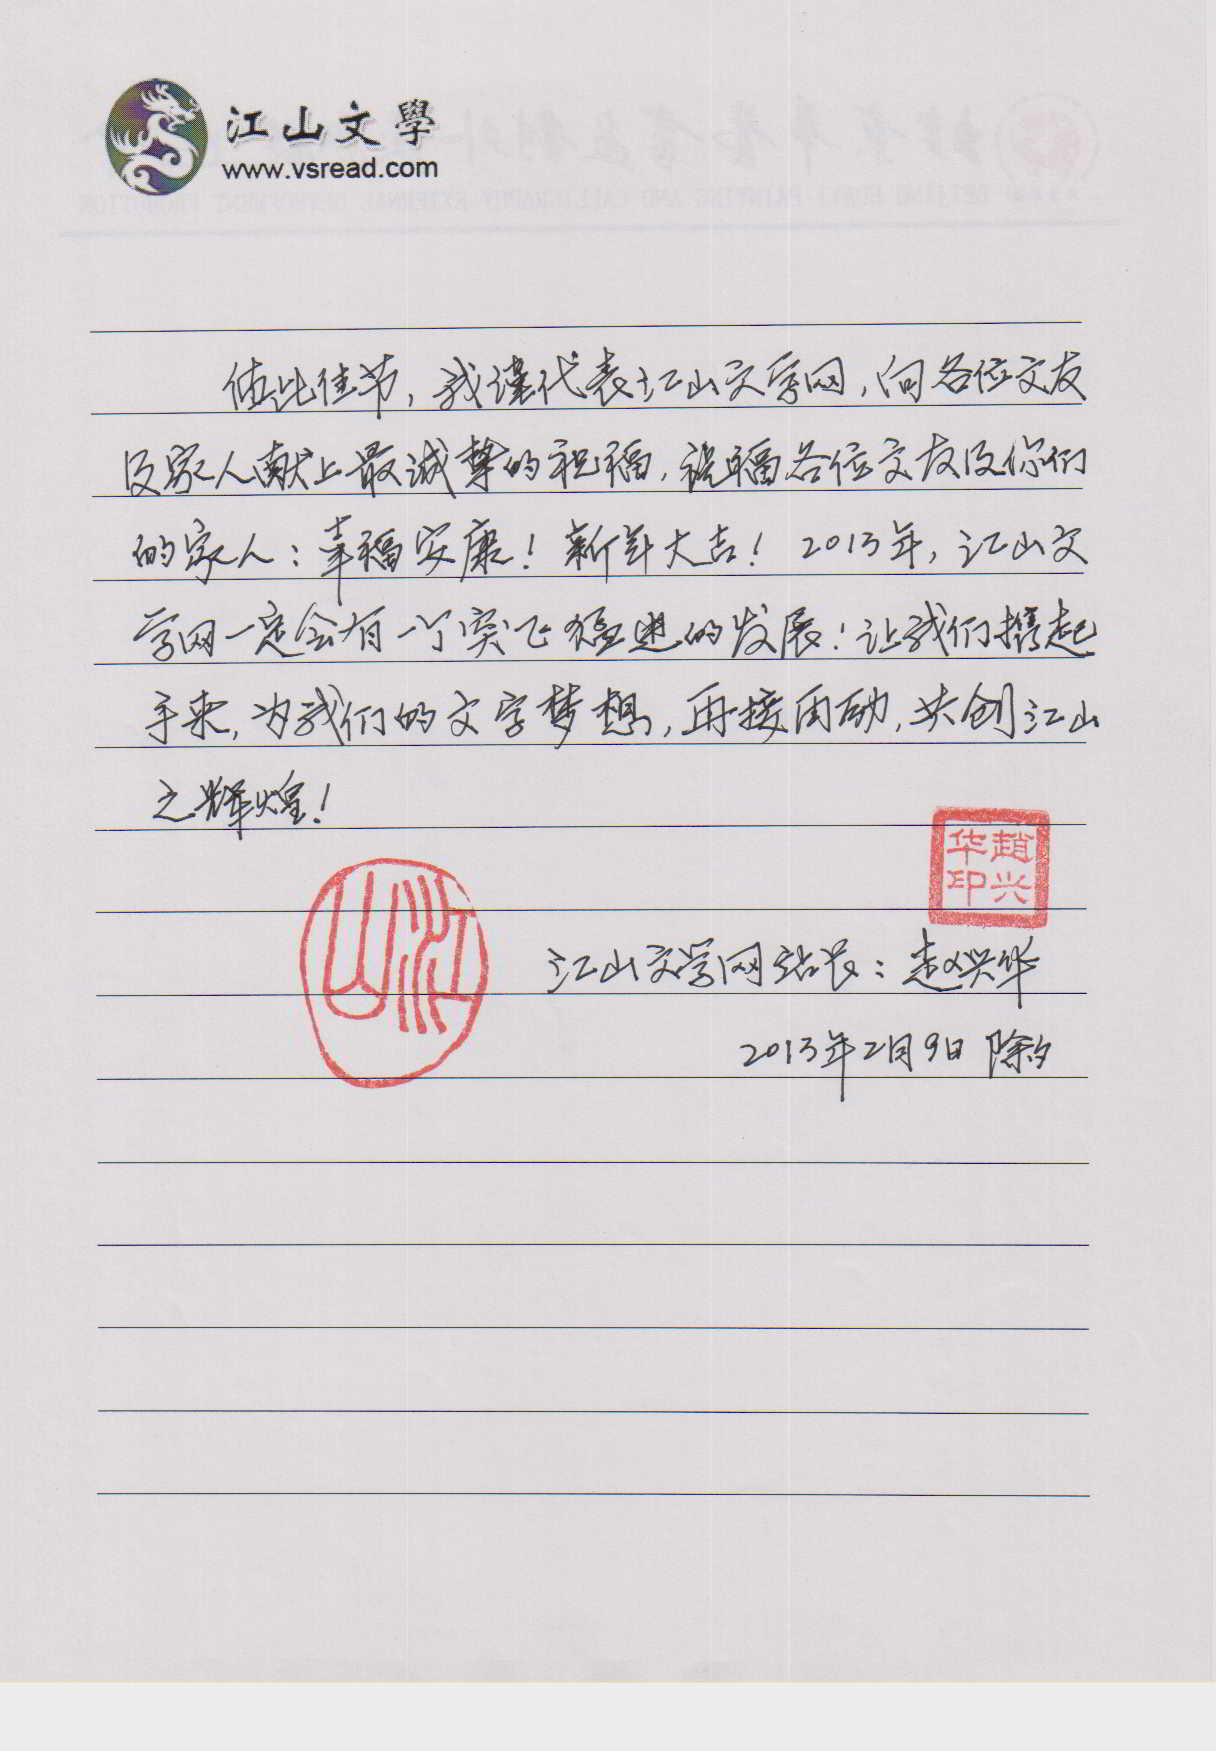 江山文學
www.vsread.com
值此佳节，我谨代表江山文学网，向各位文友
及家人献上最诚挚的祝福，祝福各位文友及你们
的家人：幸福安康！新年大吉！2013年，江山文
学网一定会有一个突飞猛进的发展！让我们携起
手来，为我们的文字梦想，再接再励，共创江山
之辉煌！
赵兴华印
江山
江山文学网站长：赵兴华
2013年2月9日 除夕